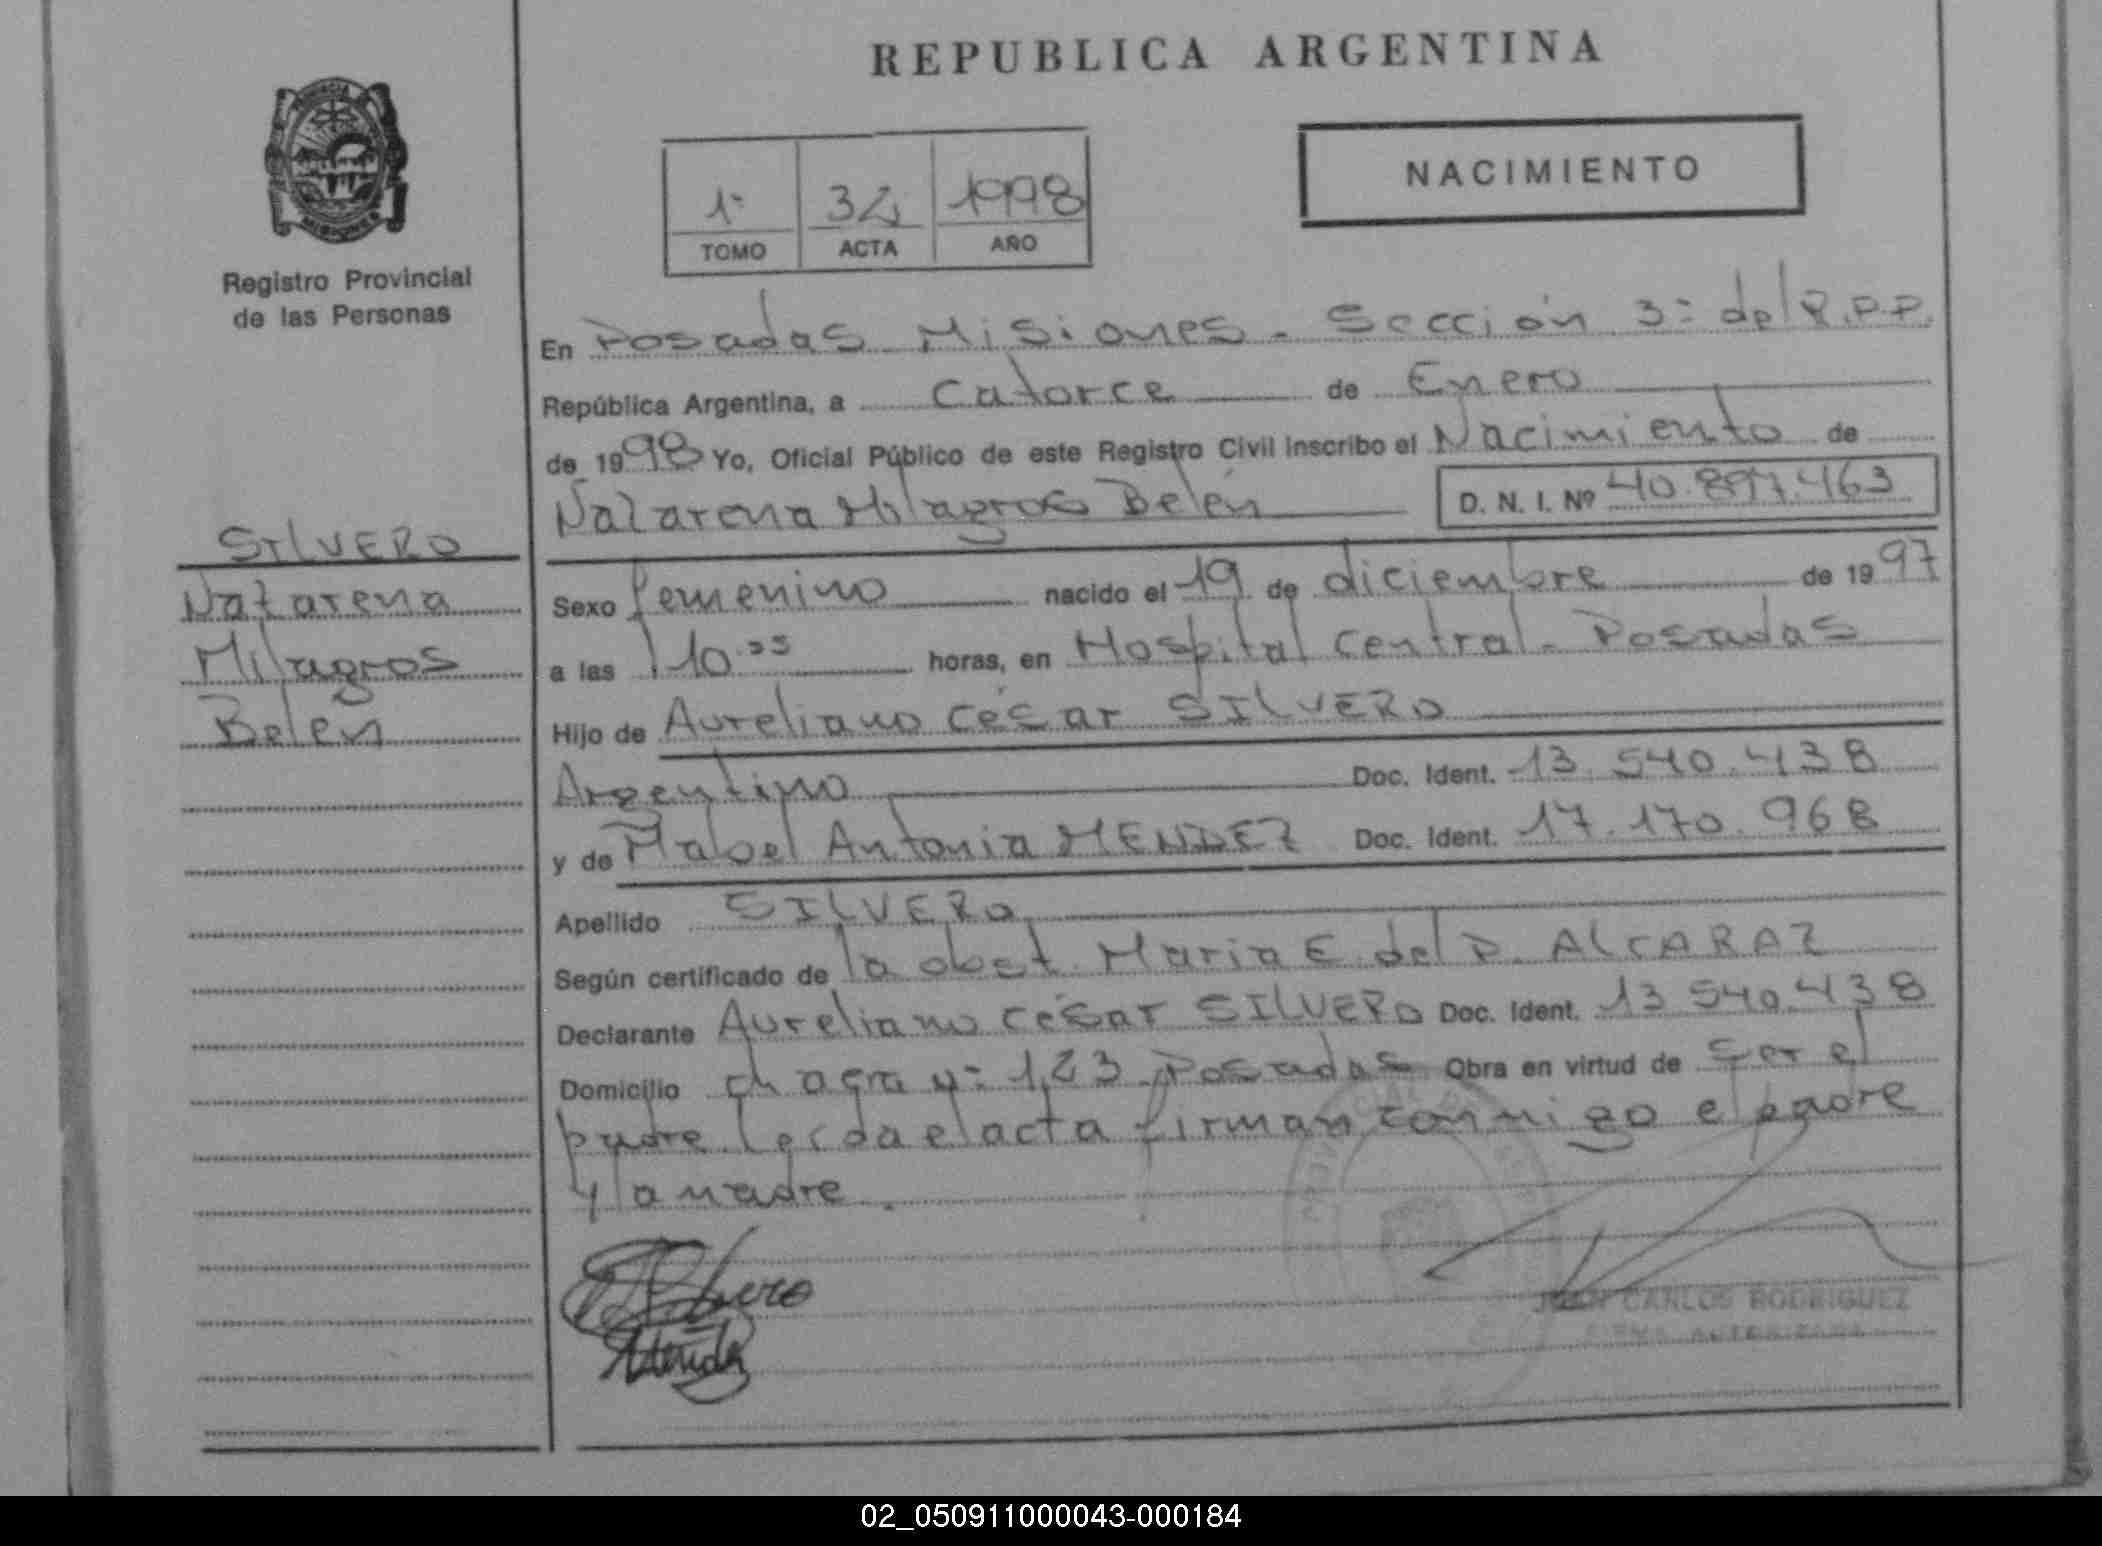 REPUBLICA ARGENTINA
NACIMIENTO
1º 34 1998
TOMO ACTA AÑO
PROVINCIA DE MISIONES
Registro Provincial
de las Personas
En Posadas Misiones - Sección 3º del R.P.P.
República Argentina, a Catorce de Enero
de 1998 Yo, Oficial Público de este Registro Civil inscribo el Nacimiento de
Nazarena Milagros Belén D. N. I. Nº 40.897.463
SILVERO
Nazarena
Milagros
Belén
Sexo femenino nacido el 19 de diciembre de 1997
a las 10 horas, en Hospital Central - Posadas
Hijo de Aureliano César SILVERO
Argentino Doc. Ident. 13.540.438
y de Mabel Antonia MENDEZ Doc. Ident. 17.170.968
Apellido SILVERO
Según certificado de la obst. Maria E. del P. ALCARAZ
Declarante Aureliano César SILVERO Doc. Ident. 13.540.438
Domicilio chacra nº 123 Posadas Obra en virtud de ser el
padre Leida el acta firman conmigo el padre
y la madre.
JUAN CARLOS RODRIGUEZ
FIRMA AUTORIZADA
02_050911000043-000184